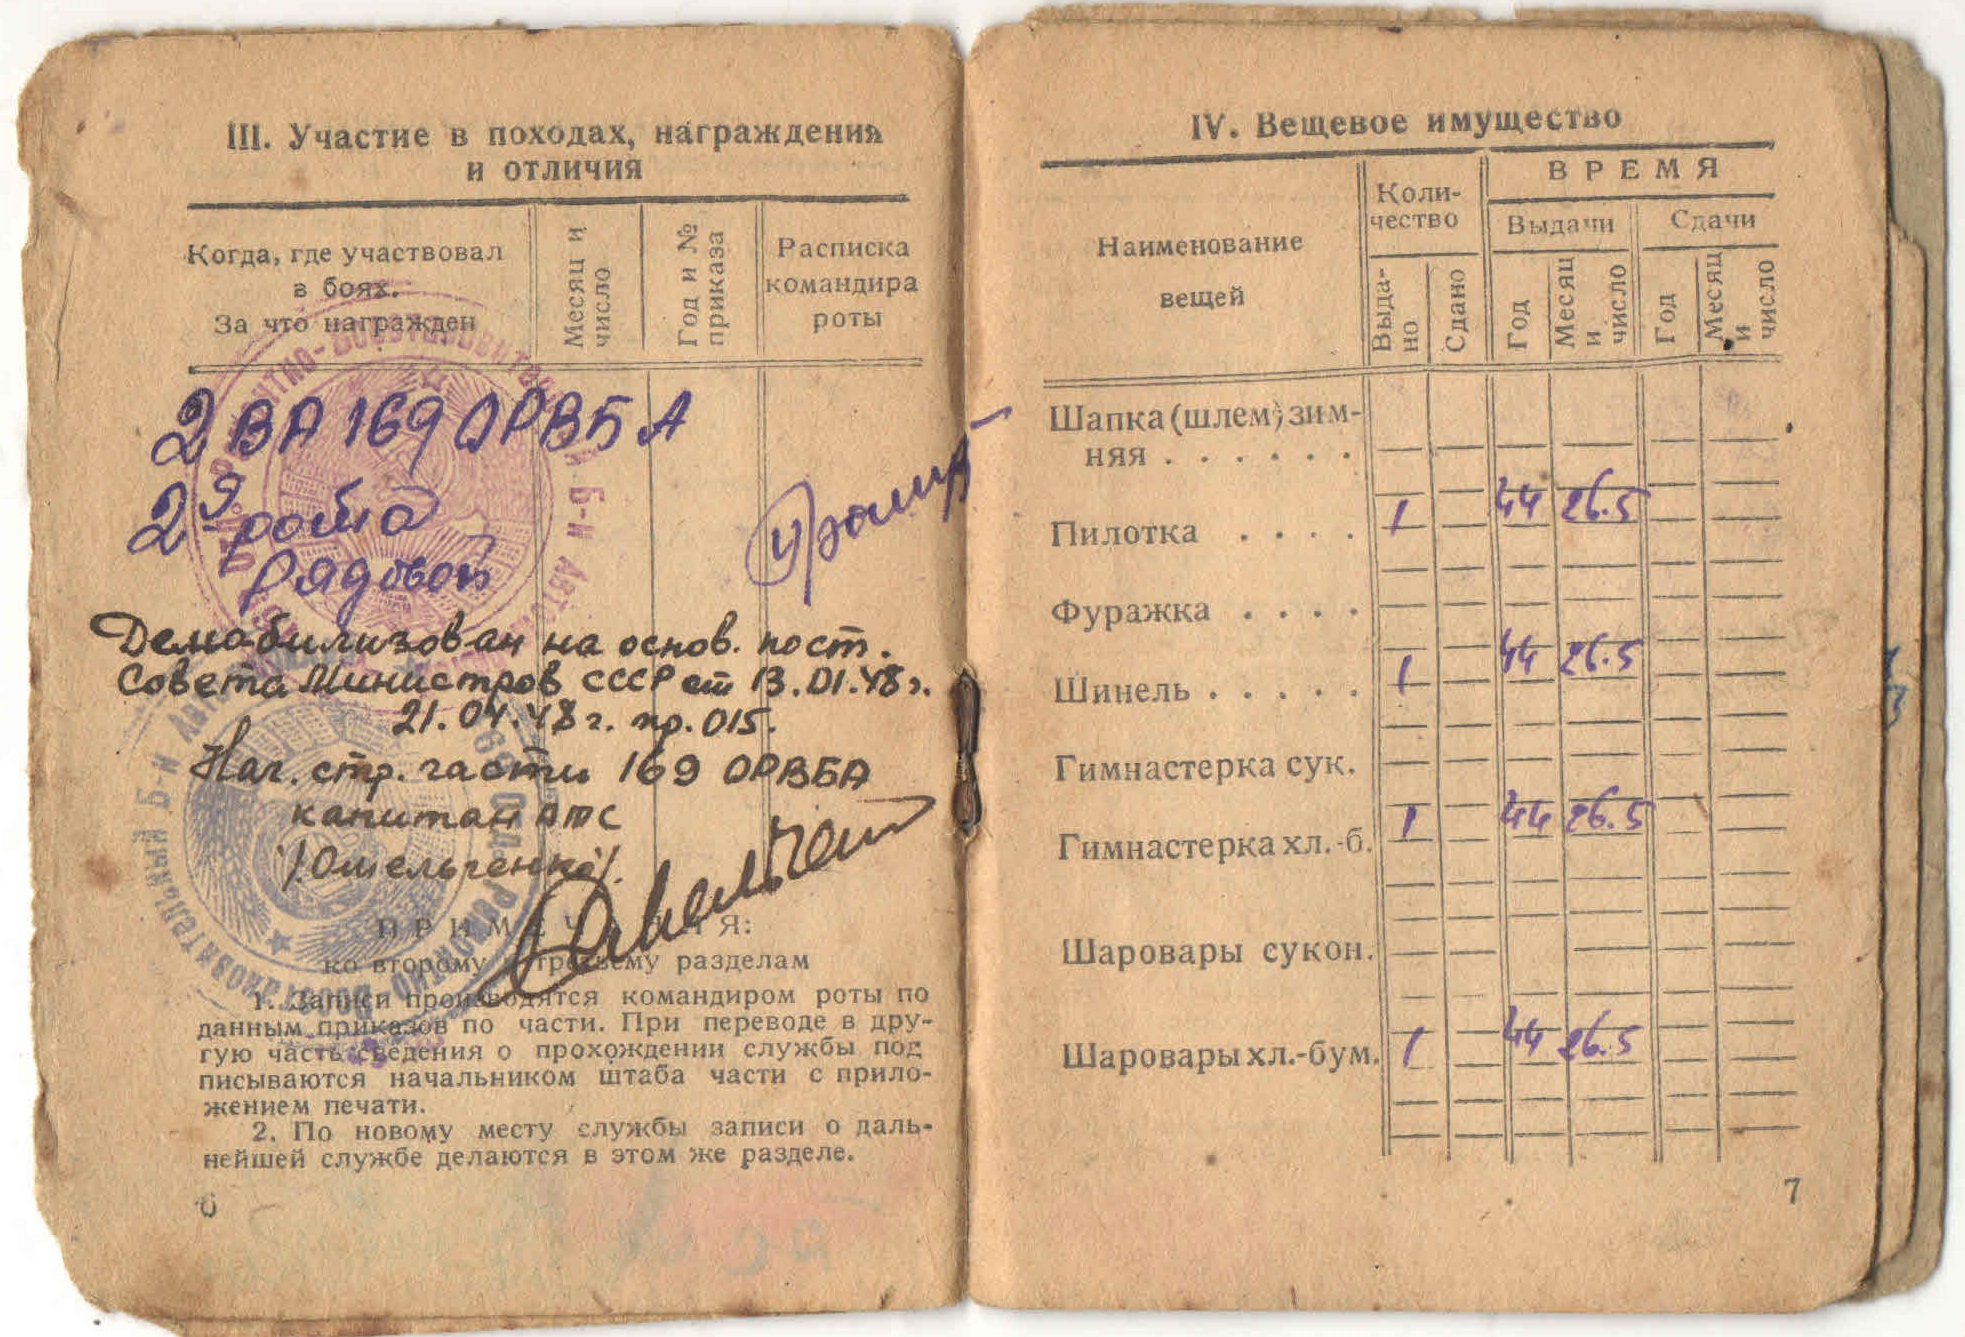 III. Участие в походах, награждения
и отличия
Когда, где участвовал
в боях.
За что награжден
Месяц и
число
Год и №
приказа
Расписка
командира
роты
2 ВА 169 ОРВБА
2я рота
рядовой
Демобилизован на основ. пост.
Совета Министров СССР от 13.01.48 г.
21.04.48 г. пр. 015.
Нач. стр. части 169 ОРВБА
капитан АТС
/Омельченко/.
ПРИМЕЧАНИЯ:
ко второму и третьему разделам
1. Записи производятся командиром роты по
данным приказов по части. При переводе в дру-
гую часть сведения о прохождении службы под
писываются начальником штаба части с прило-
жением печати.
2. По новому месту службы записи о даль-
нейшей службе делаются в этом же разделе.
6
IV. Вещевое имущество
Наименование
вещей
Коли-
чество
ВРЕМЯ
Выдачи
Сдачи
Выда-
но
Сдано
Год
Месяц
и
число
Год
Месяц
и
число
Шапка (шлем) зим-
няя . . . . . .
Пилотка . . . . 1 44 26.5
Фуражка . . . .
Шинель . . . . . 1 44 26.5
Гимнастерка сук.
Гимнастерка хл.-б. 1 44 26.5
Шаровары сукон.
Шаровары хл.-бум. 1 44 26.5
7